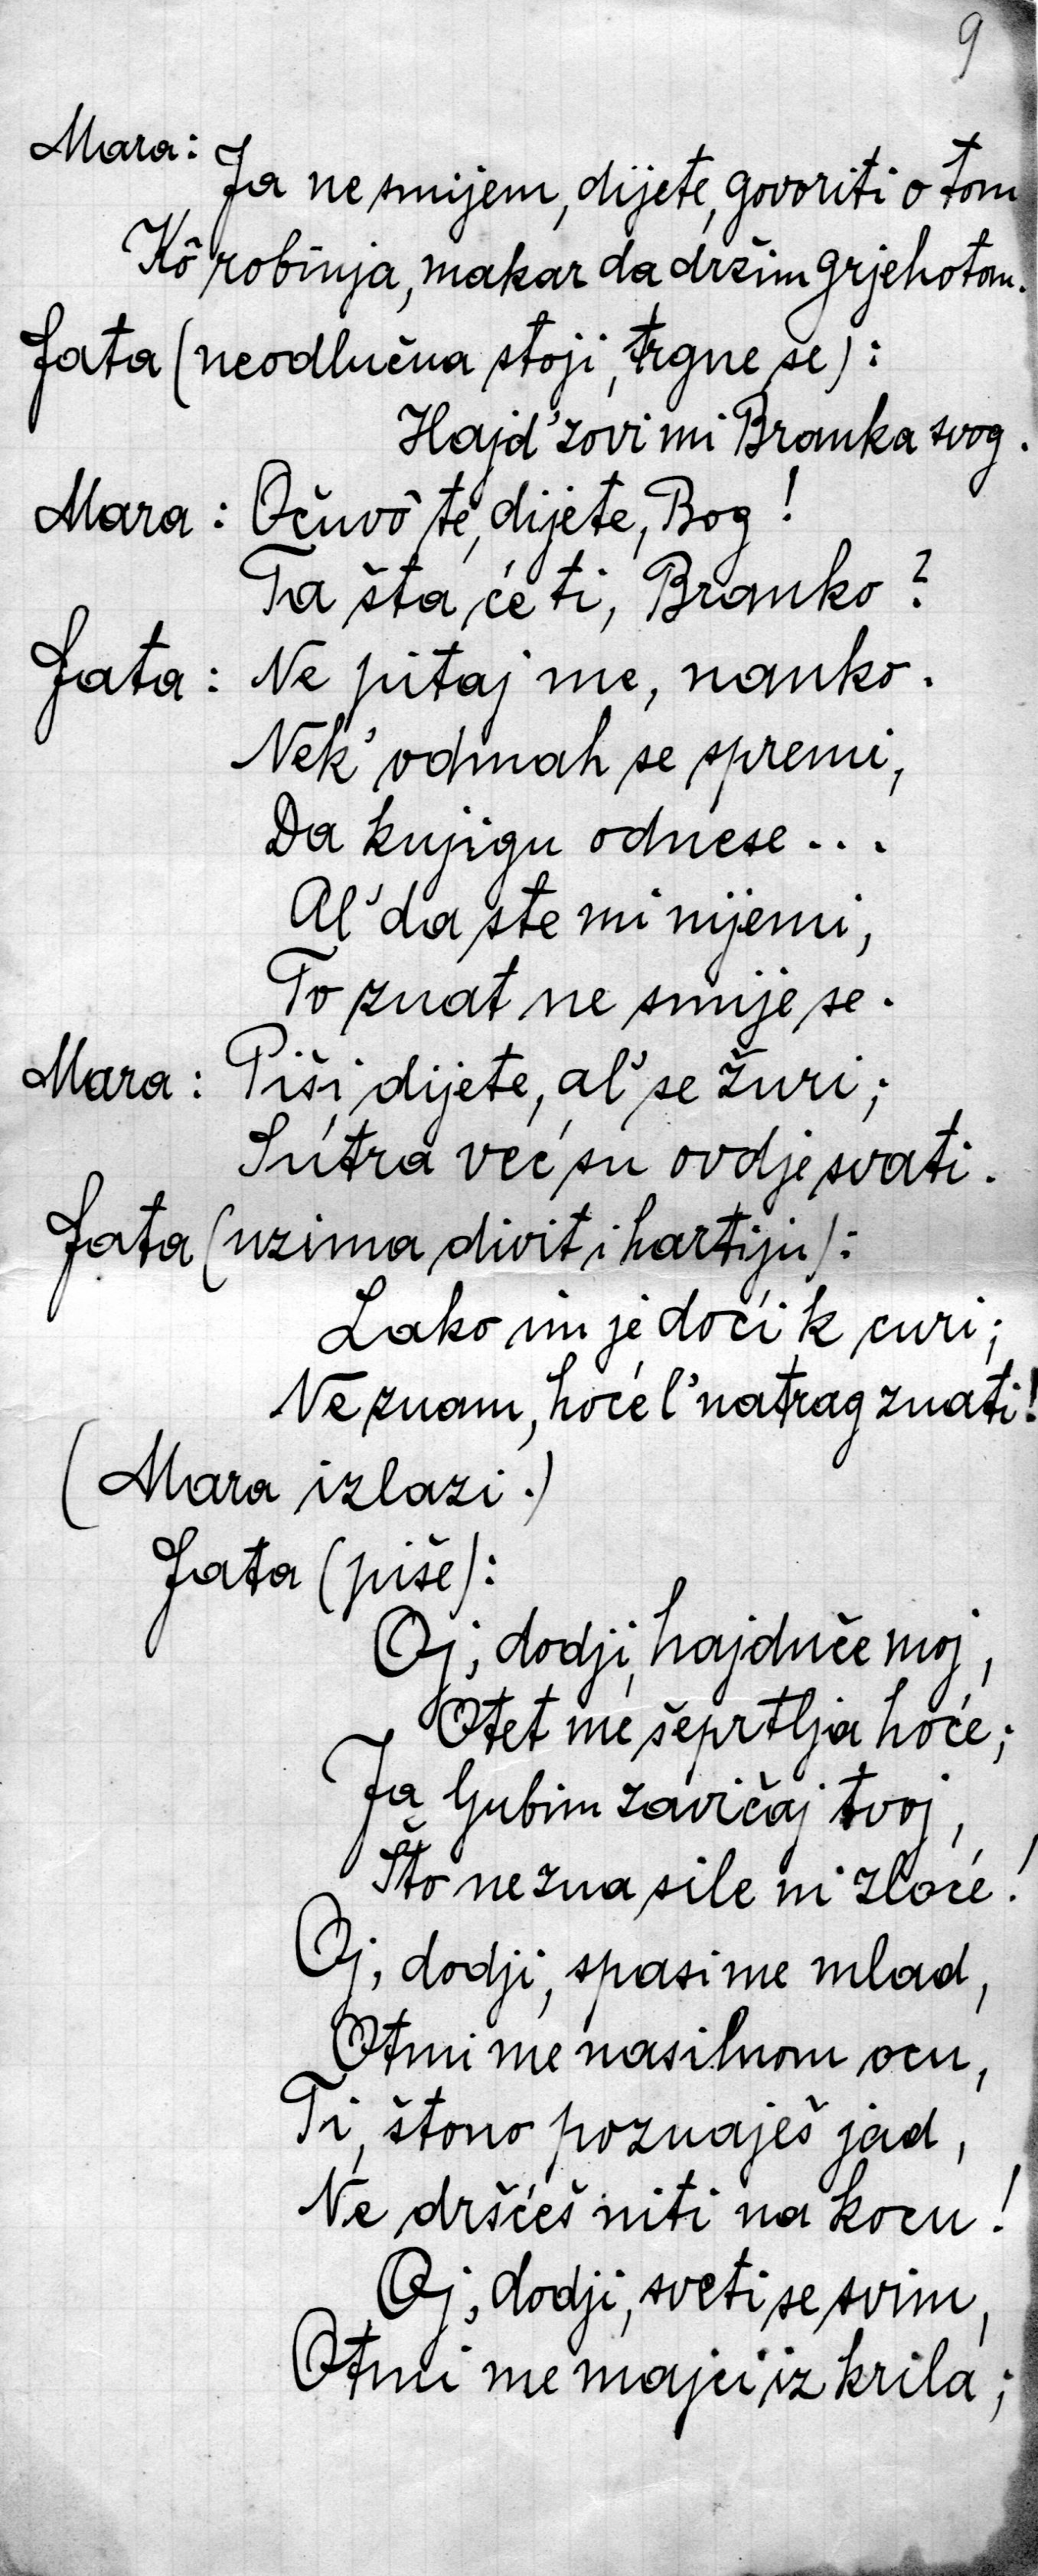 9
Mara:
Ja ne smijem, dijete, govoriti o tom
Kô robinja, makar da držim grjehotom.
Fata (neodlučna stoji, trgne se):
Hajd' zovi mi Branka svog.
Mara: Očuvô te, dijete, Bog!
Ta šta će ti, Branko?
Fata: Ne pitaj me, nanko.
Nek' odmah se spremi,
Da knjigu odnese...
Al' da ste mi nijemi,
To znat ne smije se.
Mara: Piši, dijete, al' se žuri;
Sutra već su ovdje svati.
Fata (uzima divit i hartiju):
Lako im je doći k curi;
Ne znam, hoće l' natrag znati!
(Mara izlazi.)
Fata (piše):
Oj, dodji, hajduče moj,
Otet me šeprtlja hoće;
Ja ljubim zavičaj tvoj,
Što ne zna sile ni zloće!
Oj, dodji, spasi me mlad,
Otmi me nasilnom ocu,
Ti, štono poznaješ jad,
Ne dršćeš niti na kocu!
Oj, dodji, sveti se svim,
Otmi me majci iz krila;